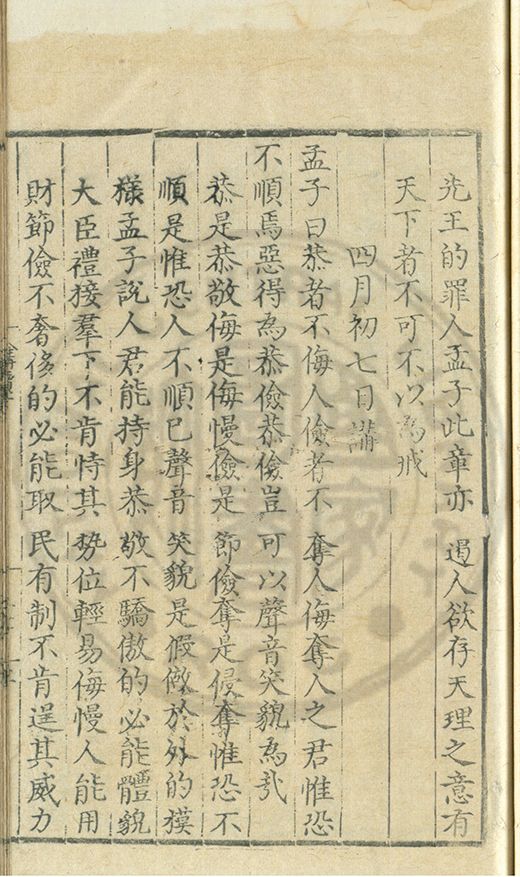 先王的罪人孟子此章亦遏人欲存天理之意有
天下者不可不以為戒
四月初七日講
孟子曰恭者不侮人儉者不奪人侮奪人之君惟恐
不順焉惡得為恭儉恭儉豈可以聲音笑貌為㢤
恭是恭敬侮是侮慢儉是節儉奪是侵奪惟恐不
順是惟恐人不順已聲音笑貌是假做於外的模
樣孟子說人君能持身恭敬不驕傲的必能體貌
大臣禮接羣下不肯恃其勢位輕易侮慢人能用
財節儉不奢侈的必能取民有制不肯逞其威力